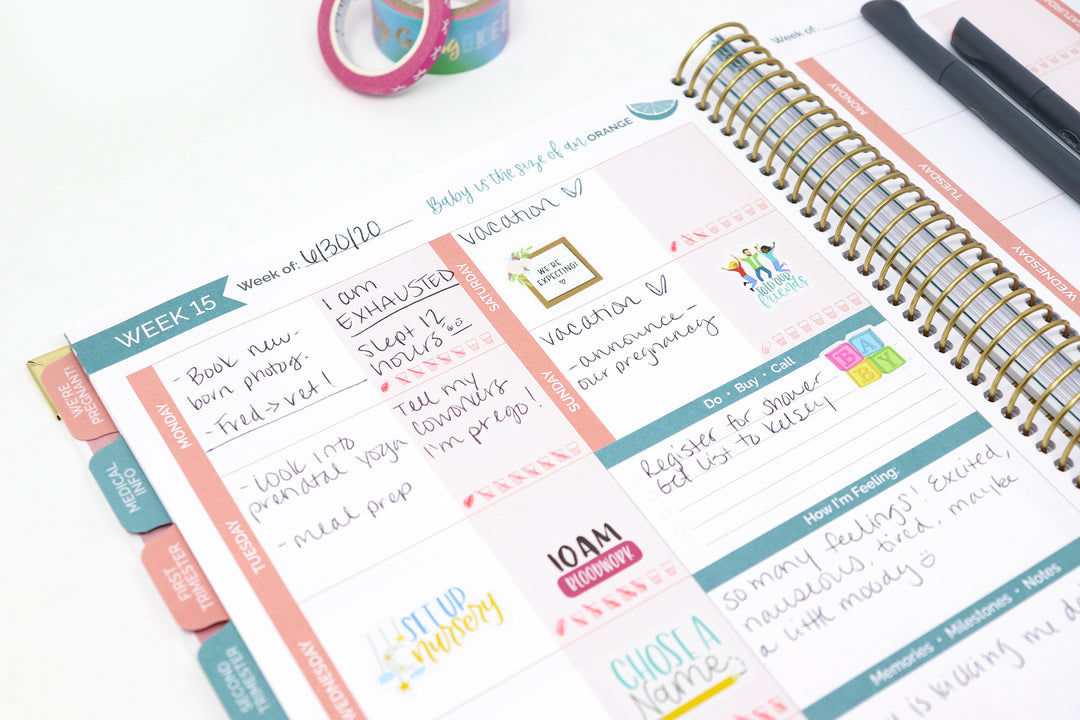 Baby is the size of an ORANGE
WEEK 15
Week of: 6/30/20
MONDAY
- Book new-
born photos.
- Fred > vet!
I am
EXHAUSTED
slept 12
hours
TUESDAY
- look into
prenatal yoga
- meal prep
Tell my
coworkers
I'm prego!
WEDNESDAY
SET UP
nursery
10AM
BLOODWORK
CHOSE A
Name
SATURDAY
vacation
WE'RE
EXPECTING!
SUNDAY
vacation
- announce -
our pregnancy
HOLD OUR
friends
Do • Buy • Call
BABY
Register for shower
Get list to Kelsey
How I'm Feeling:
so many feelings! Excited,
nauseous, tired, maybe
a little moody
Memories • Milestones • Notes
is kicking me
WE'RE
PREGNANT!
MEDICAL
INFO
FIRST
TRIMESTER
SECOND
TRIMESTER
Week of:
SATURDAY
MONDAY
TUESDAY
WEDNESDAY